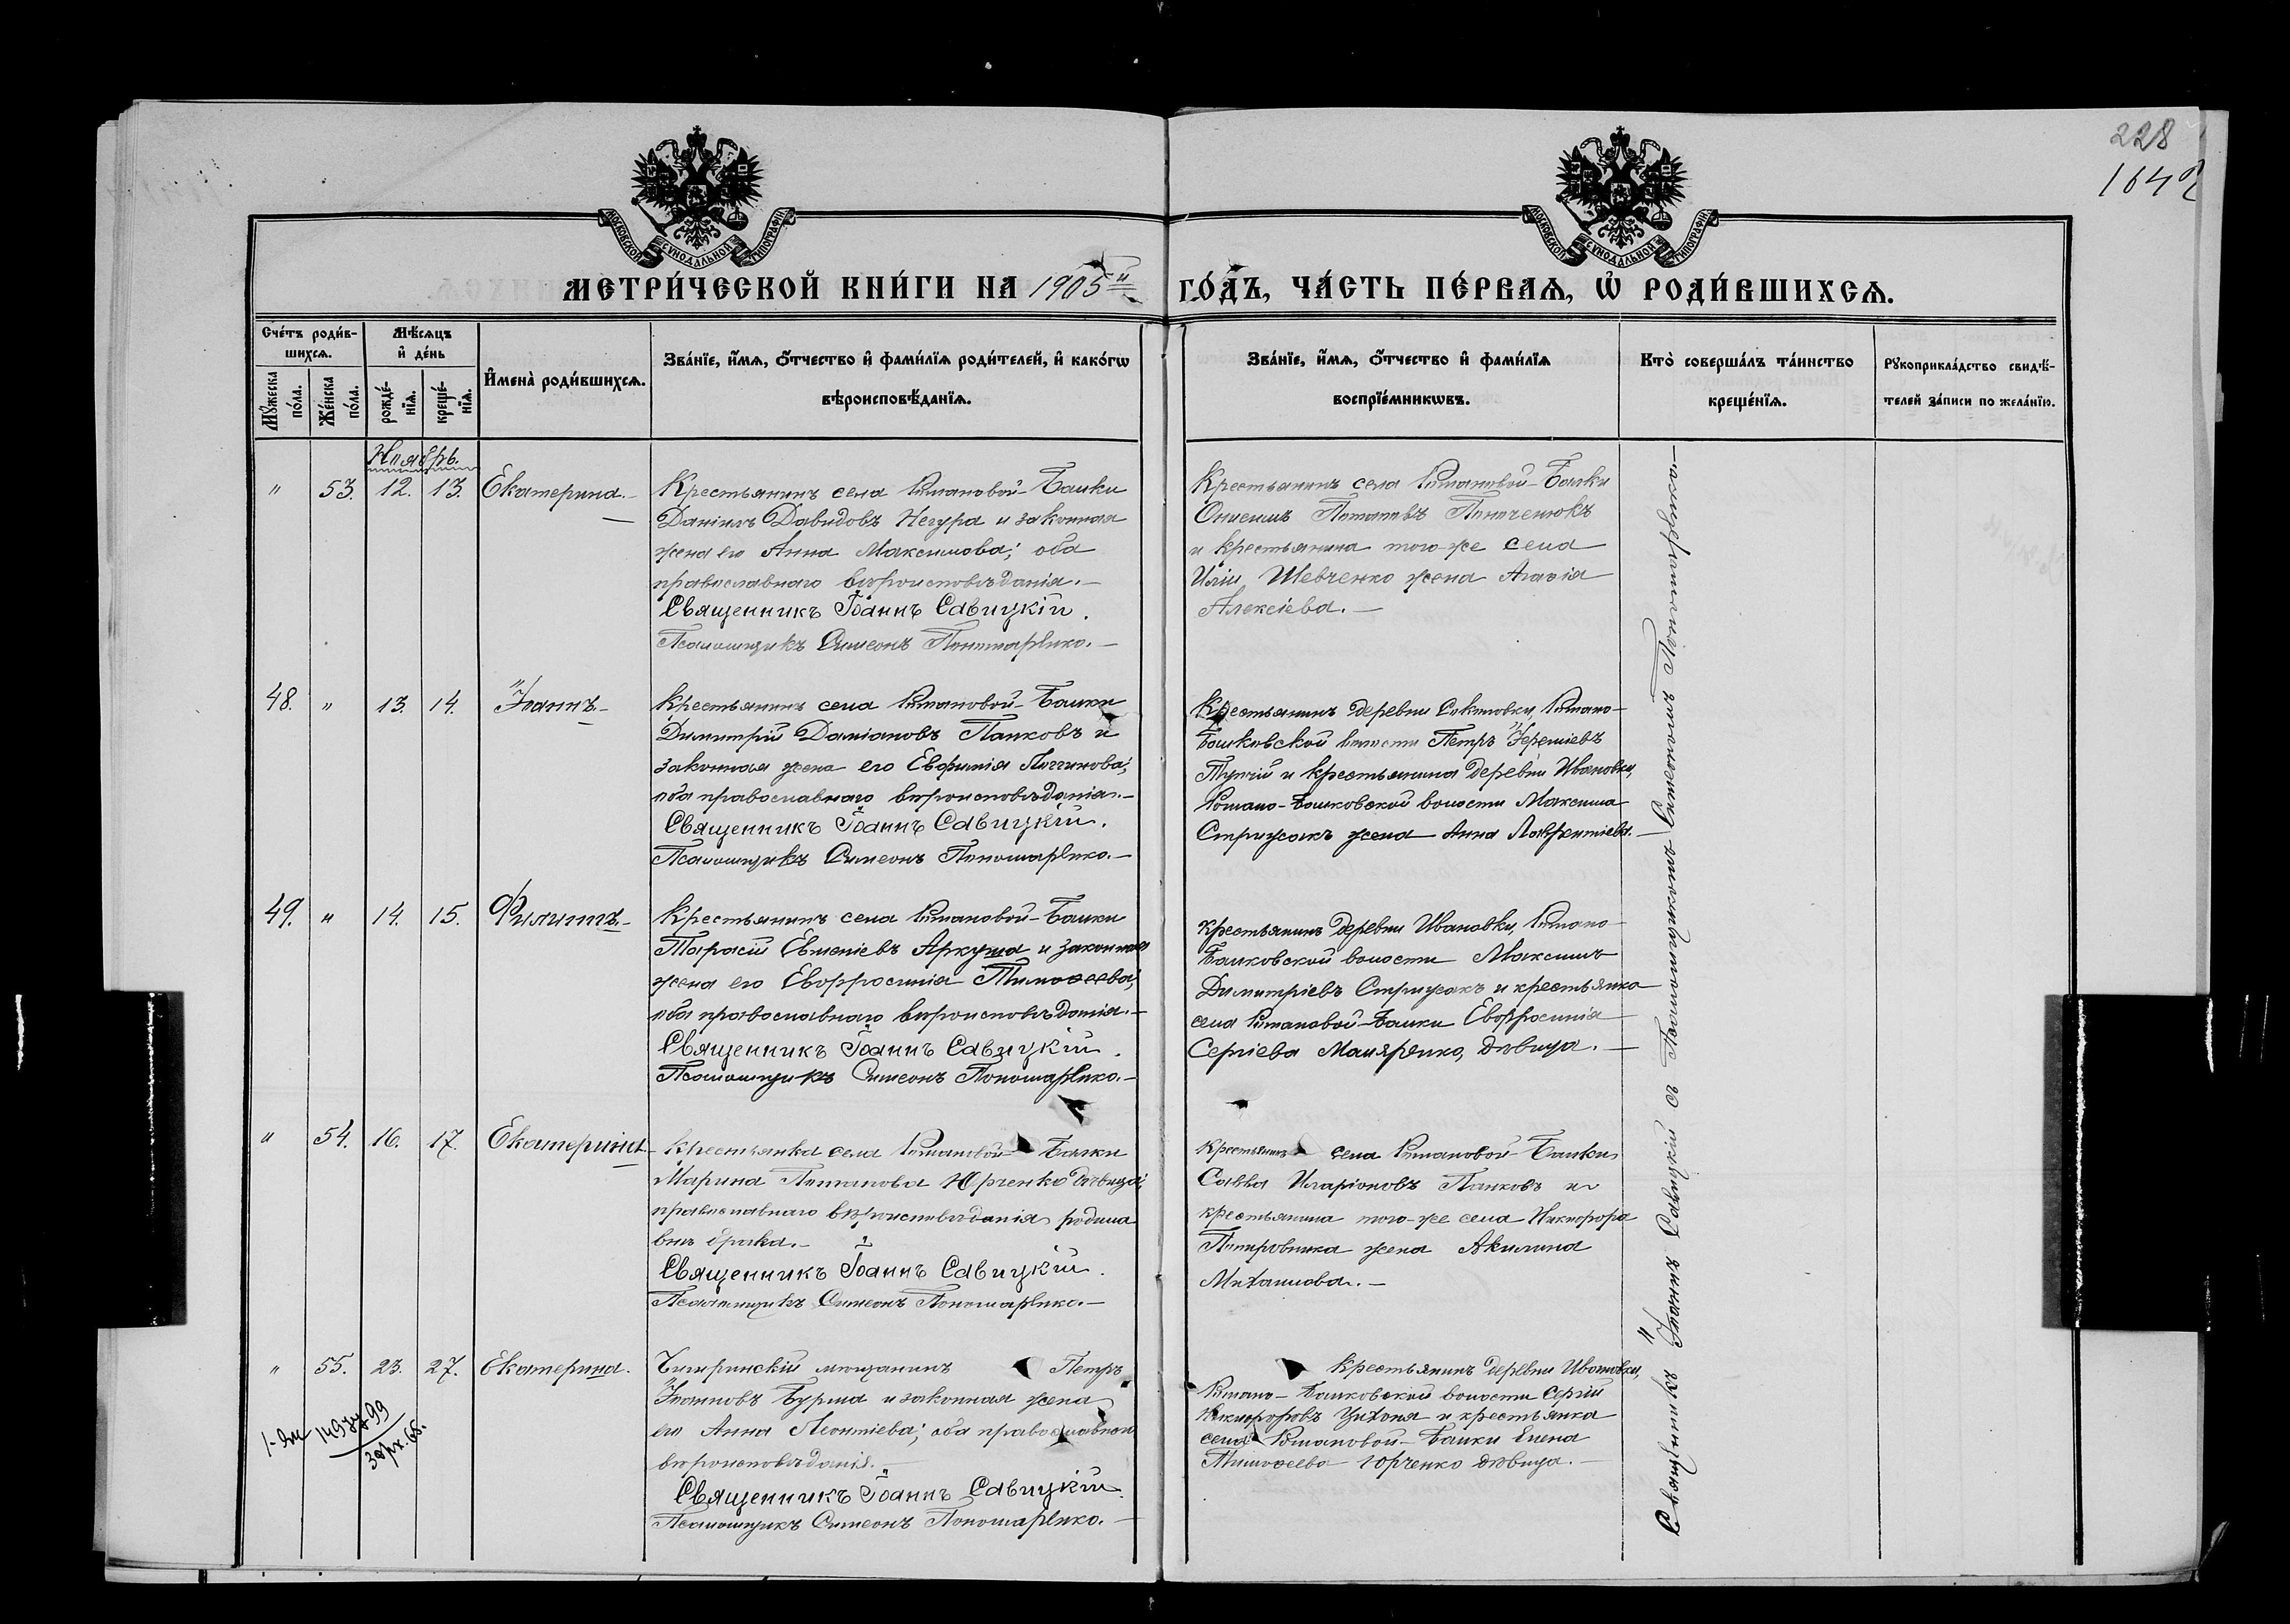 228
164
МОСКОВСКОЙ СѴНОДАЛЬНОЙ ТИПОГРАФІИ
МОСКОВСКОЙ СѴНОДАЛЬНОЙ ТИПОГРАФІИ
МЕТРИ́ЧЕСКОЙ КНИ́ГИ НА 1905й ГО́ДЪ, ЧА́СТЬ ПЕ́РВАѦ, Ѡ҆ РОДИ́ВШИХСѦ.
Сче́тъ роди́в-
шихсѧ.
Мꙋ́жеска по́ла.
Же́нска по́ла.
Мѣ́сѧцъ
и҆ де́нь
рожде́-
нїѧ.
креще́-
нїѧ.
И҆мена̀ роди́вшихсѧ.
Зва́нїе, и҆́мѧ, ѻ҆́тчество и҆ фами́лїѧ роди́телей, и҆ како́гѡ
вѣроисповѣ́данїѧ.
Зва́нїе, и҆́мѧ, ѻ҆́тчество и҆ фами́лїѧ
воспрїе́мникѡвъ.
Кто̀ соверша́лъ та́инство
креще́нїѧ.
Рꙋкоприкла́дство свидѣ́-
телей за́писи по жела́нїю.
Ноябрь.
" 53. 12. 13. Екатерина.—
Крестьянинъ села Романовой-Балки
Даніилъ Давидовъ Негура и законная
жена его Анна Максимова; оба
православнаго вѣроисповѣданія.—
Священникъ Іоаннъ Савицкій.
Псаломщикъ Симеонъ Пономаренко.—
Крестьянинъ села Романовой-Балки
Онисимъ Потаповъ
и крестьянина того-же села
Иліи Шевченко жена Агафія
Алексіева.—
48. " 13. 14. Іоаннъ—
Крестьянинъ села Романовой-Балки
Димитрій Даміановъ Панковъ и
законная жена его Евфимія Логгинова;
оба православнаго вѣроисповѣданія.—
Священникъ Іоаннъ Савицкій.
Псаломщикъ Симеонъ Пономаренко.—
Крестьянинъ деревни Романо-
Балковской волости Петръ Іереміевъ
и крестьянина деревни Ивановки,
Романо-Балковской волости Максима
Стрижакъ жена Анна
49. " 14. 15. Филиппъ—
Крестьянинъ села Романовой-Балки
Тарасій Евменіевъ Аркуша и законная
жена его Евфросинія Тимоѳеева;
оба православнаго вѣроисповѣданія.—
Священникъ Іоаннъ Савицкій.
Псаломщикъ Симеонъ Пономаренко.—
Крестьянинъ деревни Ивановки, Романо-
Балковской волости Максимъ
Димитріевъ Стрижакъ и крестьянка
села Романовой-Балки Евфросинія
Сергіева Маляренко, дѣвица.—
" 54. 16. 17. Екатерина—
Крестьянка села Романовой Балки
Марина Потапова Юрченко дѣвица;
православнаго вѣроисповѣданія родила
внѣ брака.—
Священникъ Іоаннъ Савицкій.
Псаломщикъ Симеонъ Пономаренко.—
Крестьянинъ села Романовой-Балки
Савва Иларіоновъ Панковъ и
крестьянина того-же села Никифора
жена Акилина
Михаилова.—
" 55. 23. 27. Екатерина.
Чигиринскій мѣщанинъ Петръ
Іоанновъ Бурма и законная жена
его Анна Леонтіева; оба православнаго
вѣроисповѣданія.—
Священникъ Іоаннъ Савицкій.
Псаломщикъ Симеонъ Пономаренко.—
Крестьянинъ деревни Ивановки,
Романо-Балковской волости Сергій
Никифоровъ и крестьянка
села Романовой-Балки Елена
Тимоѳеева Юрченко дѣвица.—
Священникъ Іоаннъ Савицкій съ Псаломщикомъ Симеономъ Пономаренкомъ.—